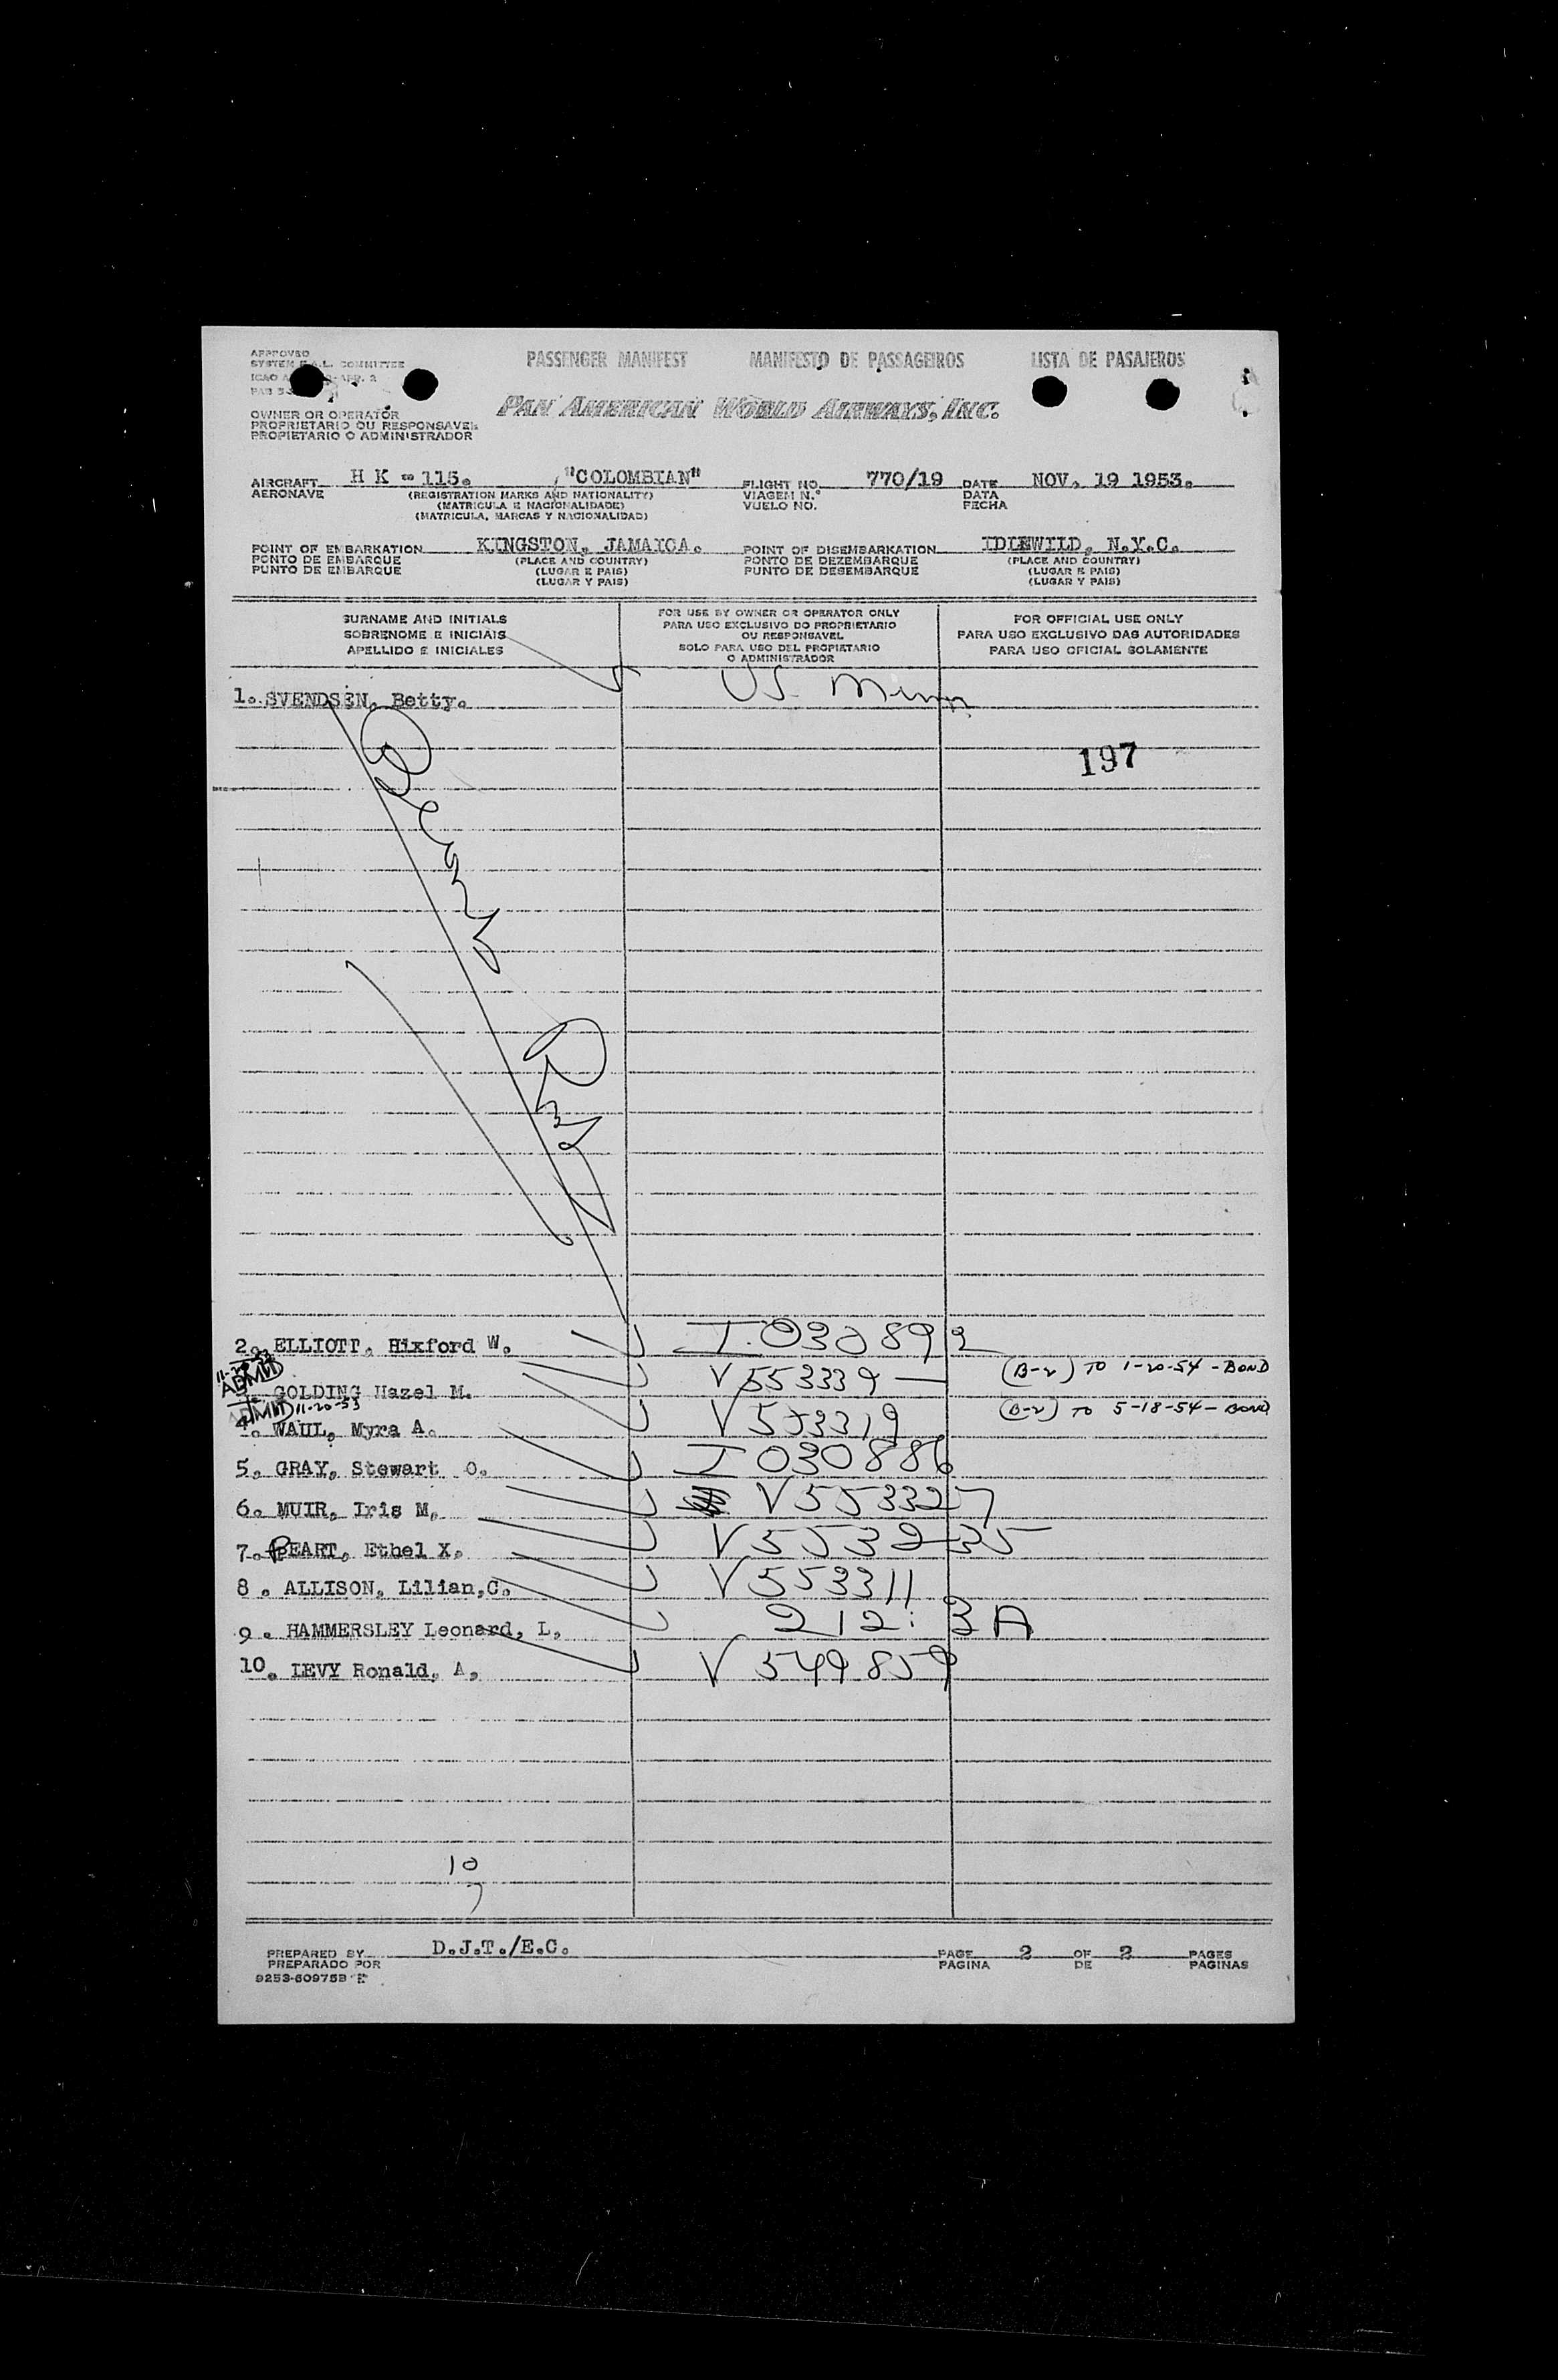 APPROVED
PASSENGER MANIFEST MANIFESTO DE PASSAGEIROS LISTA DE PASAJEROS
SYSTEM COMMITTEE
PAN AMERICAN WORLD AIRWAYS, INC.
OWNER OR OPERATOR
PROPRIETARIO OU RESPONSAVEL
PROPIETARIO O ADMINISTRADOR
AIRCRAFT H K - 115. "COLOMBIAN" FLIGHT NO. 770/19 DATE NOV. 19 1953.
AERONAVE (REGISTRATION MARKS AND NATIONALITY) VIAGEM N.° DATA
(MATRICULA E NACIONALIDADE) VUELO NO. FECHA
(MATRICULA, MARCAS Y NACIONALIDAD)
POINT OF EMBARKATION KINGSTON, JAMAICA. POINT OF DISEMBARKATION IDLEWILD, N.Y.C.
PONTO DE EMBARQUE (PLACE AND COUNTRY) PONTO DE DEZEMBARQUE (PLACE AND COUNTRY)
PUNTO DE EMBARQUE (LUGAR E PAIS) PUNTO DE DESEMBARQUE (LUGAR E PAIS)
(LUGAR Y PAIS) (LUGAR Y PAIS)
SURNAME AND INITIALS
SOBRENOME E INICIAIS
APELLIDO E INICIALES
FOR USE BY OWNER OR OPERATOR ONLY
PARA USO EXCLUSIVO DO PROPRIETARIO
OU RESPONSAVEL
SOLO PARA USO DEL PROPIETARIO
O ADMINISTRADOR
FOR OFFICIAL USE ONLY
PARA USO EXCLUSIVO DAS AUTORIDADES
PARA USO OFICIAL SOLAMENTE
1. SVENDSEN, Betty. US
197
2. ELLIOTT, Hixford W. I 030892
11-20-53
ADMIT
GOLDING Hazel M. V 553339 (B-2) TO 1-20-54 - BOND
ADMIT 11-20-53
4. WAUL, Myra A. V 553319 (B-2) TO 5-18-54 - BOND
5. GRAY, Stewart O. I 030886
6. MUIR, Iris M. V 553327
7. PEART, Ethel X. V 553235
8. ALLISON, Lilian, C. V 553311
9. HAMMERSLEY Leonard, L. 212: 3A
10. LEVY Ronald, A. V 549859
10
7
PREPARED BY D.J.T./E.C. PAGE 2 OF 2 PAGES
PREPARADO POR PAGINA DE PAGINAS